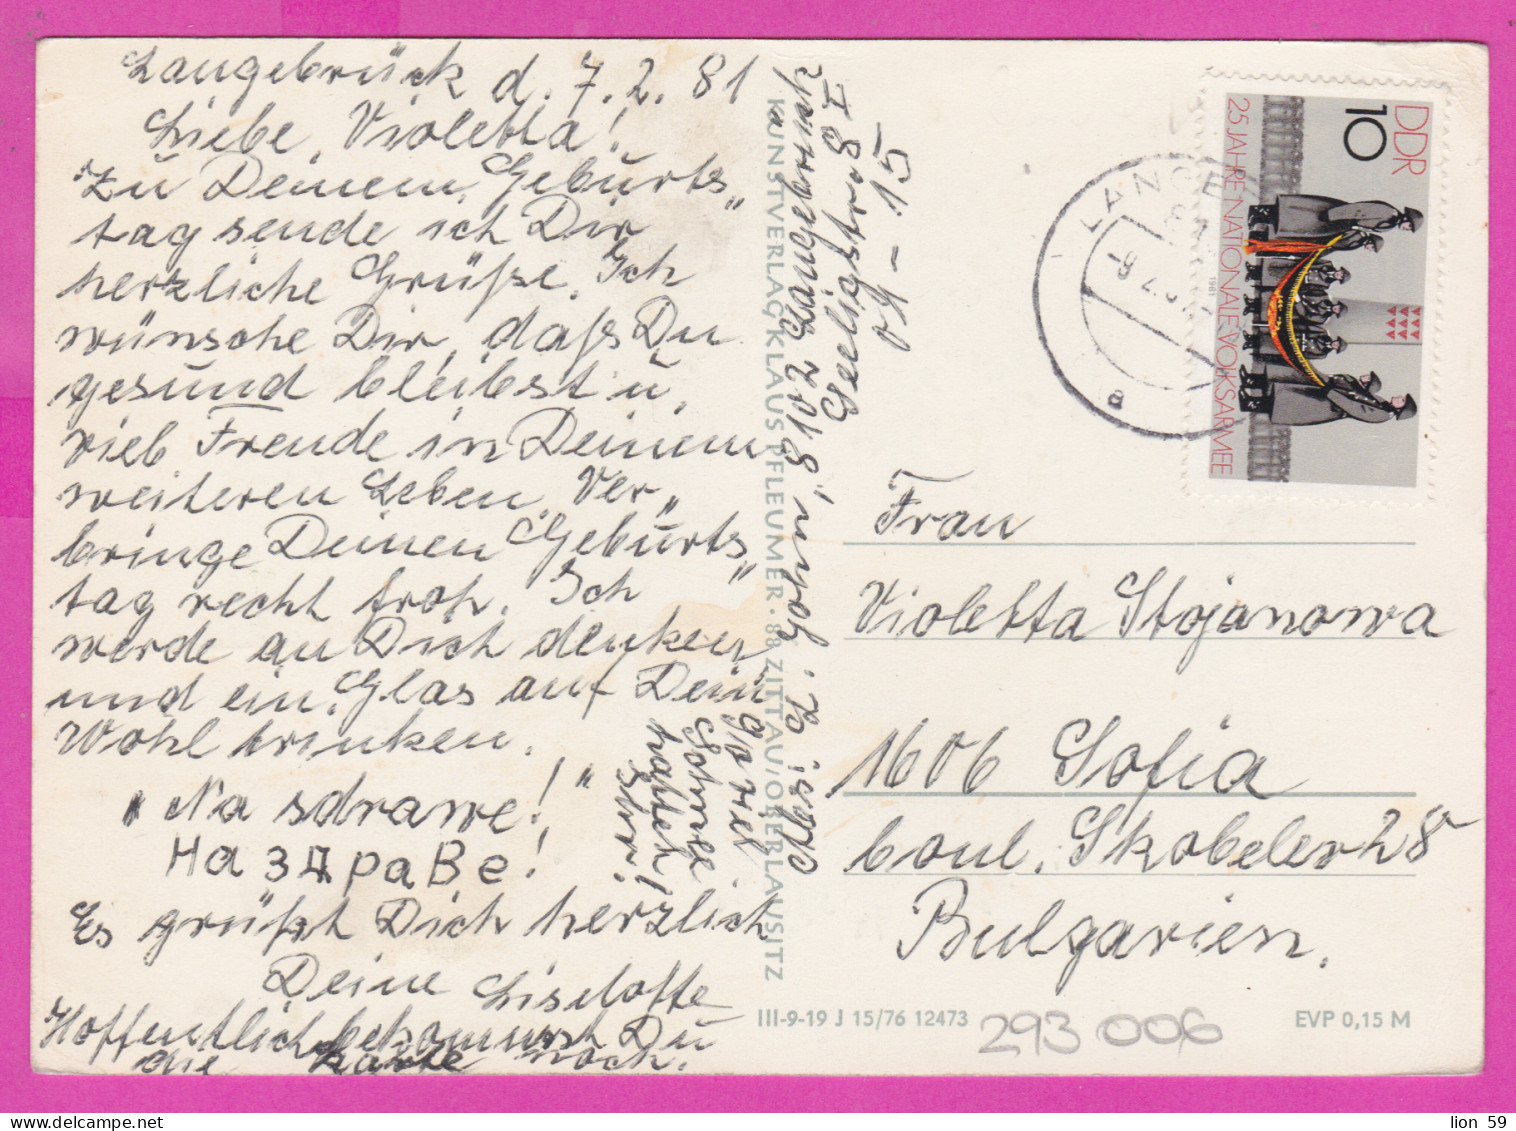 Langebrück d. 7.2.81
Liebe Violetta!
Zu Deinem Geburts„
tag sende ich Dir
herzliche Grüße. Ich
wünsche Dir, daß Du
gesund bleibst u.
vieb Freude in Deinem
weiteren Leben. Ver„
bringe Deinen Geburts„
tag recht froh. Ich
werde an Dich denken
und ein Glas auf Dein
Wohl trinken.
„Na sdrawe!"
На здраве!
Es grüßt Dich herzlich
Deine Liselotte
Hoffentlich bekommst Du
die Karte noch.
viel
Schnee
hatten
wir!
KUNSTVERLAG KLAUS PFLEUMER · 88 ZITTAU/OBERLAUSITZ
8102 Langebrück
Seeligstr. 8 I
09-15
DDR
10
25 JAHRE NATIONALE VOLKSARMEE
1981
LANGE
a
Frau
Violetta Stojanowa
1606 Sofia
boul. Skobelev 28
Bulgarien.
III-9-19 J 15/76 12473
293 006
EVP 0,15 M
lion 59